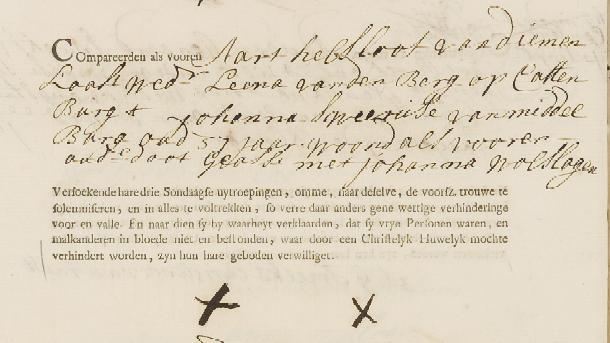 Compareerden als vooren Aart hebsloot van diemen
Laatst wedr Leena van den Berg op Catten
Burg & Johanna van middel
Burg oud 37 jaar woond als vooren
oude doot geass: met Johanna wolslagen
Versoekende hare drie Sondaagse uytroepingen, omme, naar deselve, de voorsz. trouwe te
solemniseren, en in alles te voltrekken, so verre daar anders gene wettige verhinderinge
voor en valle. En naar dien sy by waarheyt verklaarden, dat sy vrye Personen waren, en
malkanderen in bloede niet en bestonden, waar door een Christelyk Huwelyk mochte
verhindert worden, zyn hun hare geboden verwilliget.